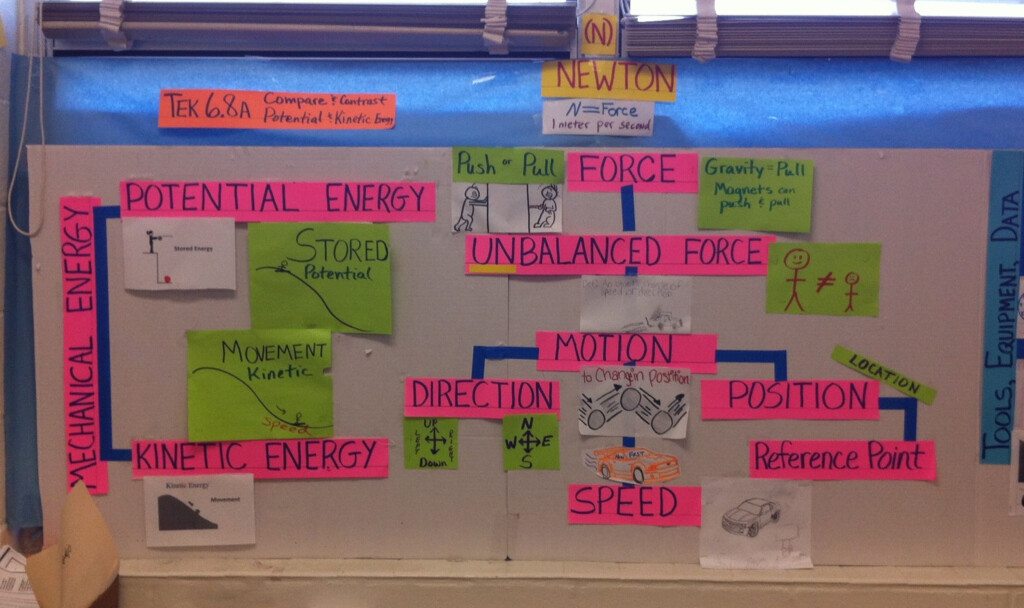 (N)
NEWTON
N=Force
1 meter per second
TEK 6.8A Compare & Contrast
Potential & Kinetic Energy
MECHANICAL ENERGY
POTENTIAL ENERGY
Stored Energy
STORED
Potential
MOVEMENT
Kinetic
Speed
KINETIC ENERGY
Kinetic Energy
Movement
Push or Pull
FORCE
Gravity = Pull
Magnets can
push & pull
UNBALANCED FORCE
≠
Speed
MOTION
to Chang in Position
DIRECTION
UP
LEFT
RIGHT
Down
N
W E
S
SPEED
POSITION
LOCATION
Reference Point
TOOLS, EQUIPMENT, DATA